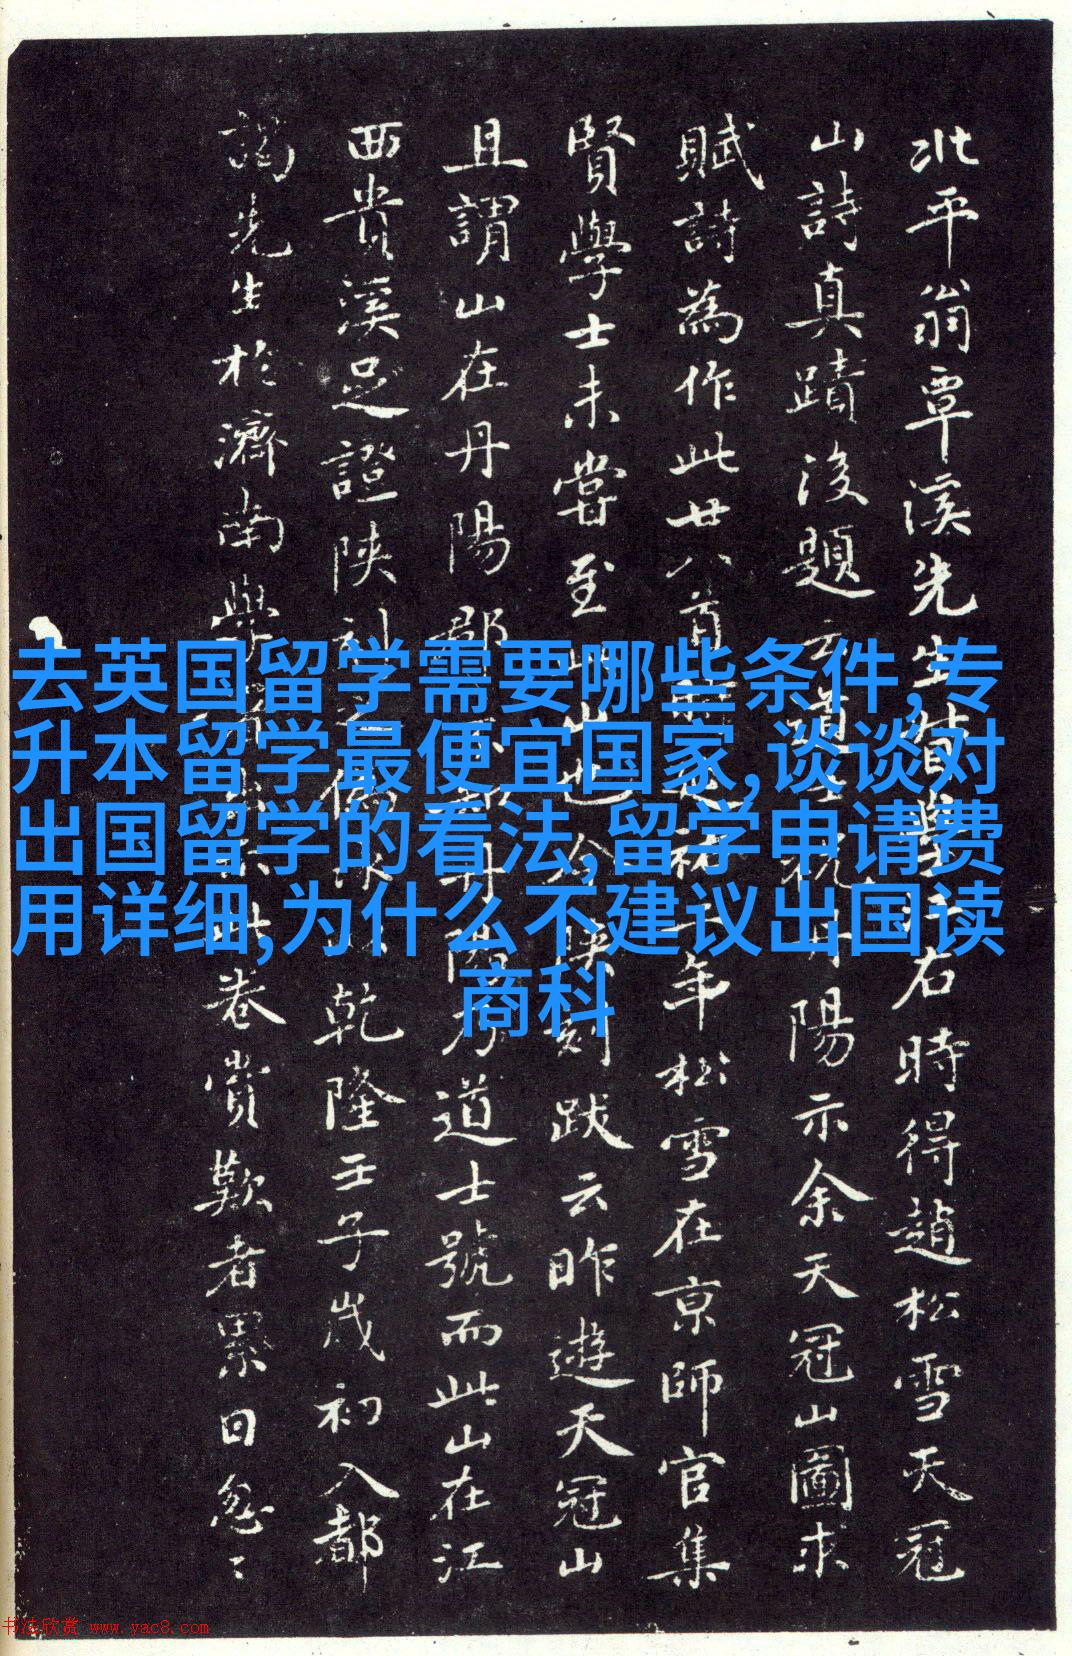 北平翁覃溪先生督學時得趙松雪天冠
山詩真蹟後題云道士祝丹陽示余天冠山圖求
賦詩為作此廿八首延祐二年松雪在京師官集
賢學士未嘗至此山也今陝刻跋云昨遊天冠山
且謂山在丹陽郡不知丹陽乃道士號而此山在江
西貴溪足證陝刻之偽乾隆壬子歲初入都
謁先生於濟南學署此卷賞歎者累日怱〻
去英国留学需要哪些条件,专
升本留学最便宜国家,谈谈对
出国留学的看法,留学申请费
用详细,为什么不建议出国读
商科
书法欣赏 www.yac8.com